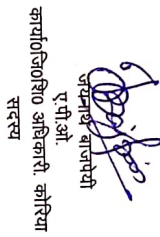 जयनाथ बाजपेयी
ए.पी.ओ.
कार्या०जि०शि० अधिकारी, कोरिया
सदस्य